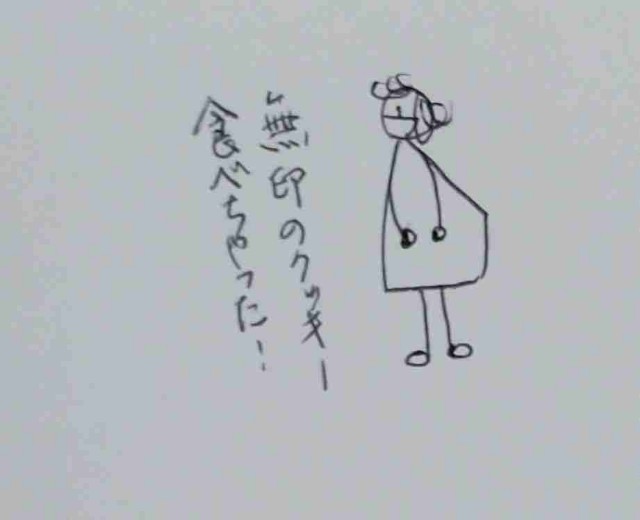 無印のクッキー
食べちゃった!